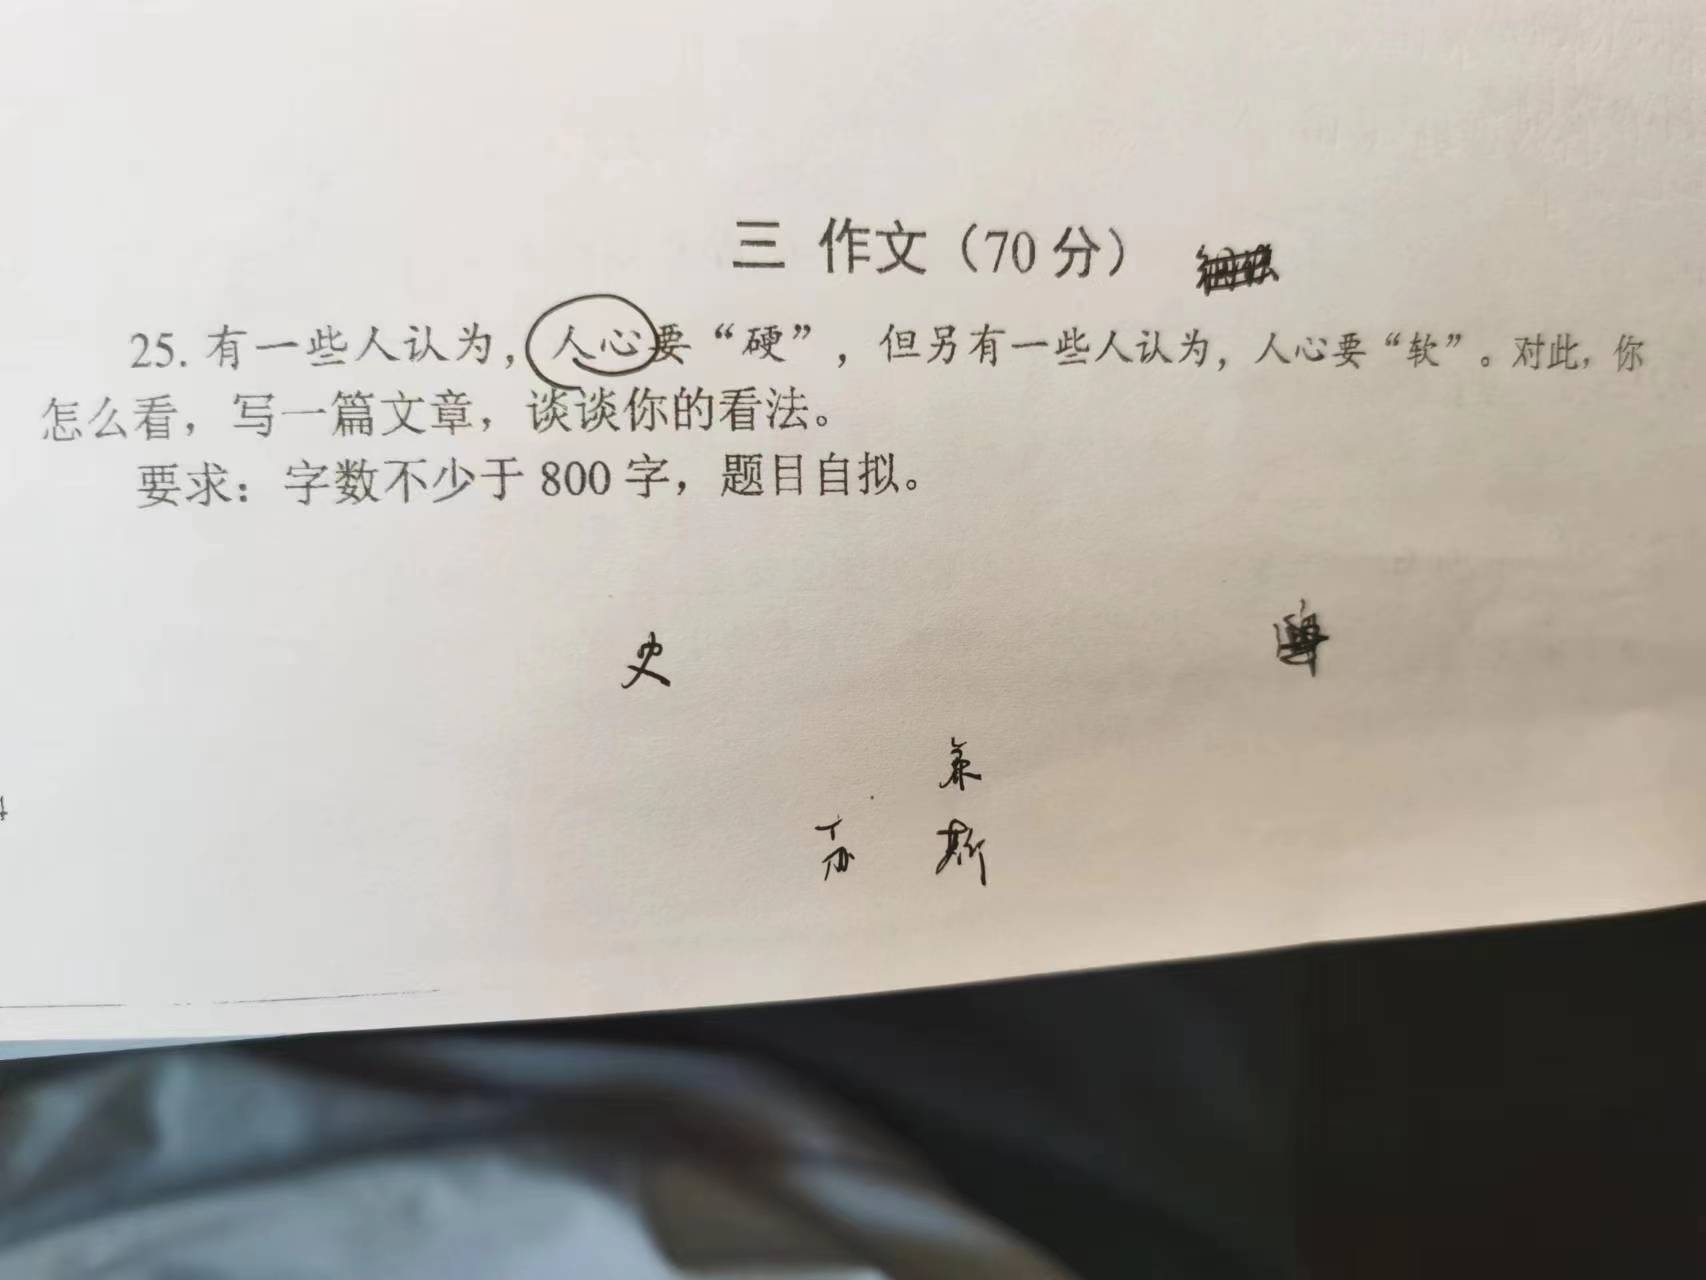 三 作文（70分）
25. 有一些人认为，人心要“硬”，但另有一些人认为，人心要“软”。对此，你
怎么看，写一篇文章，谈谈你的看法。
要求：字数不少于 800 字，题目自拟。
史
斯